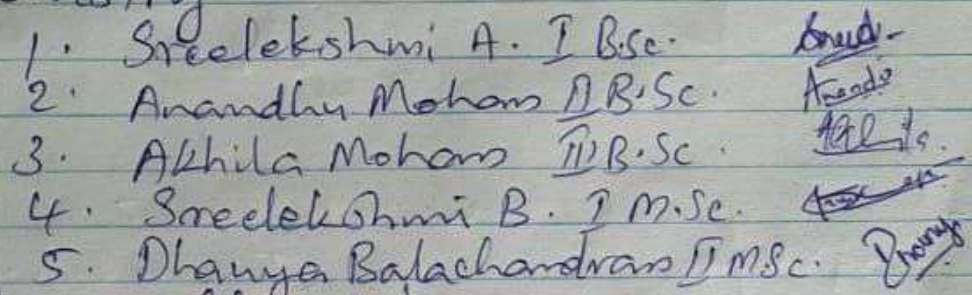 1. Sreelekshmi A. I B.Sc.
2. Anandhu Mohan II B.Sc. Anandu
3. Akhila Mohan III B.Sc. Akhila.
4. Sreelekshmi B. I M.Sc.
5. Dhanya Balachandran II M.Sc. Dhanya